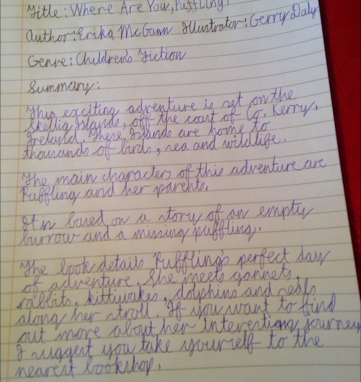 Title: Where Are You, Puffling?
Author: Erika McGann Illustrator: Gerry Daly
Genre: Children's Fiction
Summary:
This exciting adventure is set on the
Skellig Islands, off the coast of Co. Kerry,
Ireland. These Islands are home to
thousands of birds, sea and wildlife.
The main character of this adventure are
Puffling and her parents.
It is based on a story of an empty
burrow and a missing puffling.
The book details Pufflings perfect day
of adventure. She meets gannets,
rabbits, kittiwakes, dolphins and seals
along her stroll. If you want to find
out more about her interesting journey
I suggest you take yourself to the
nearest bookshop.